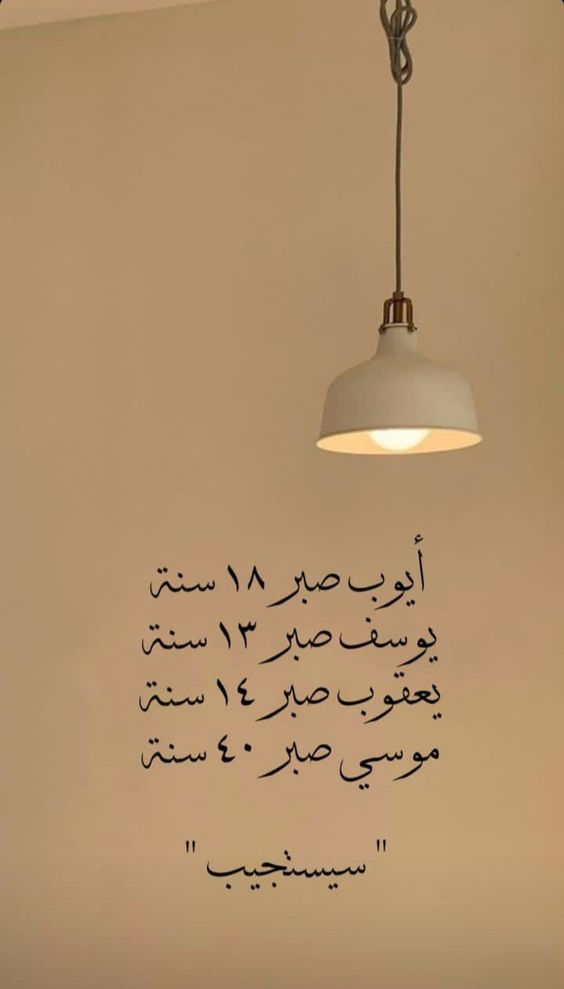 أيوب صبر ١٨ سنة
يوسف صبر ١٣ سنة
يعقوب صبر ١٤ سنة
موسي صبر ٤٠ سنة
" سيستجيب "